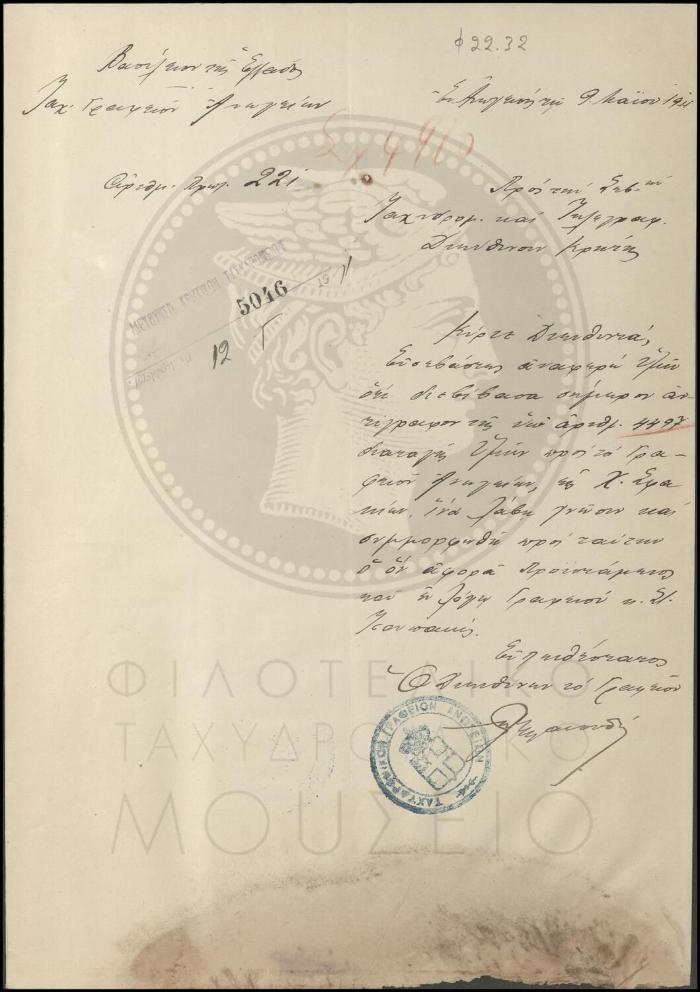 φ 22.32
Βασίλειον της Ελλάδος
Ταχ. Γραφείον Ανωγείων
Εν Ανωγείοις τη 9 Μαΐου 19
Αριθμ. Πρωτ. 221
Προς την Σεβ-
Ταχυδρομ. και Τηλεγραφ.
Διεύθυνσιν Κρήτης
5046
19
12
Κύριε Διευθυντά,
Ευσεβάστως αναφέρω Υμίν
ότι διεβίβασα σήμερον αν-
τίγραφον της υπ' αριθμ. 4497
διαταγής Υμών προς το Γρα-
φείον Ανωγείων, εις Χ. Σφα-
κίων, ίνα λάβη γνώσιν και
συμμορφωθή προς ταύτην
ο ον αφορά προϊστάμενος
του εν λόγω Γραφείου κ. Σ.
Ευπειθέστατος
Ο Διευθύνων το Γραφείον
ΤΑΧΥΔΡΟΜΙΚΟΝ ΓΡΑΦΕΙΟΝ ΑΝΩΓΕΙΩΝ
ΦΙΛΟΤΕΛΙΚΟ
ΤΑΧΥΔΡΟΜΙΚΟ
ΜΟΥΣΕΙΟ